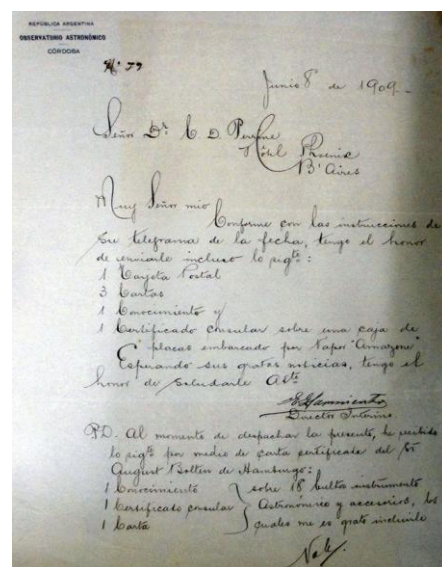 REPÚBLICA ARGENTINA
OBSERVATORIO ASTRONÓMICO
CÓRDOBA
Nº 79
Junio 8 de 1909.-
Señor Dr. C. D. Perrine
Hôtel Phoenix
Bs Aires
Muy Señor mio
Conforme con las instrucciones de
su telegrama de la fecha, tengo el honor
de enviarle incluso lo sigte:
1 Tarjeta Postal
3 Cartas
1 Conocimiento y
1 Certificado Consular sobre una caja de
placas embarcado por Vapor "Amazone"
Esperando sus gratas noticias, tengo el
honor de Saludarle
Sarmiento
Director Interino.
P.D. Al momento de despachar la presente, he recibido
lo sigte por medio de carta certificada del Sr
August Bolten de Hamburgo:
1 Conocimiento
1 Certificado consular
1 Carta
sobre 18 bultos instrumento
Astronómico y accesorios, los
quales me es grato incluirle
Vale.